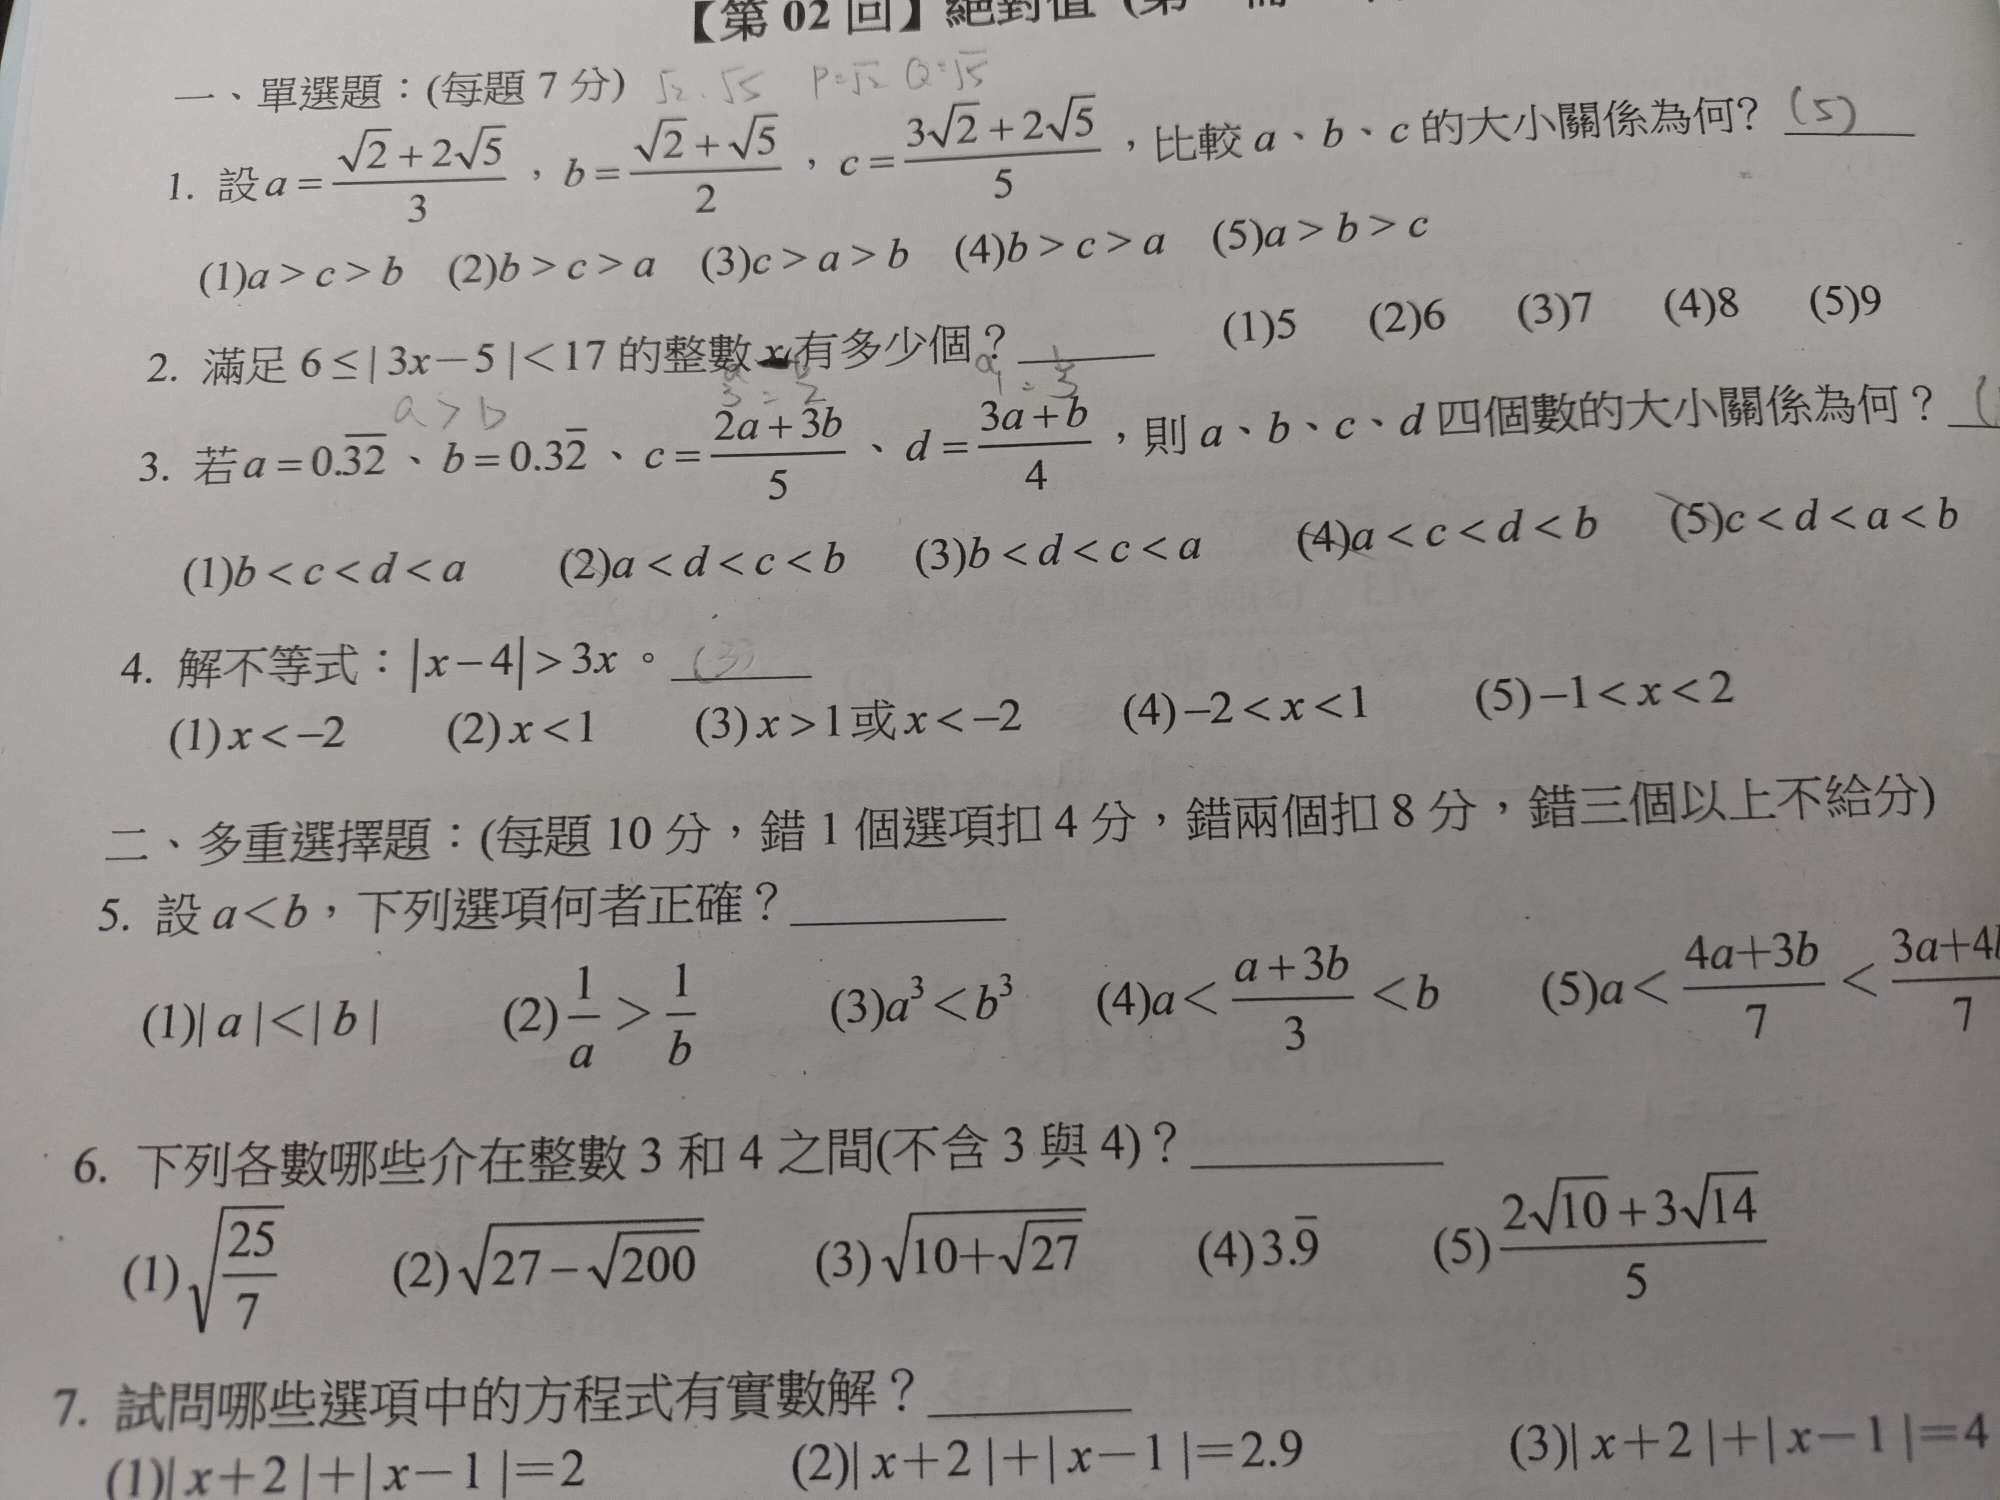 【第 02 回】絕對值 (第
一、單選題：(每題 7 分) √2 . √5 P=√2 Q=√5
1. 設 a = (√2 + 2√5)/3 ，b = (√2 + √5)/2 ，c = (3√2 + 2√5)/5 ，比較 a、b、c 的大小關係為何? (5)
(1)a > c > b (2)b > c > a (3)c > a > b (4)b > c > a (5)a > b > c
2. 滿足 6 ≤ | 3x − 5 | < 17 的整數 x 有多少個？ (1)5 (2)6 (3)7 (4)8 (5)9
a > b a/3 = b/2 a/1 = b/3
3. 若 a = 0.3̅2̅ 、b = 0.32̅ 、c = (2a + 3b)/5 、d = (3a + b)/4 ，則 a、b、c、d 四個數的大小關係為何？
(1)b < c < d < a (2)a < d < c < b (3)b < d < c < a (4)a < c < d < b (5)c < d < a < b
4. 解不等式：|x − 4| > 3x 。 (3)
(1) x < −2 (2) x < 1 (3) x > 1 或 x < −2 (4) −2 < x < 1 (5) −1 < x < 2
二、多重選擇題：(每題 10 分，錯 1 個選項扣 4 分，錯兩個扣 8 分，錯三個以上不給分)
5. 設 a < b，下列選項何者正確？
(1)| a | < | b | (2) 1/a > 1/b (3)a³ < b³ (4)a < (a + 3b)/3 < b (5)a < (4a+3b)/7 < (3a+4b)/7
6. 下列各數哪些介在整數 3 和 4 之間(不含 3 與 4)？
(1) √(25/7) (2) √(27 − √200) (3) √(10+√27) (4) 3.9̅ (5) (2√10 + 3√14)/5
7. 試問哪些選項中的方程式有實數解？
(1)| x+2 |+| x−1 |=2 (2)| x+2 |+| x−1 |=2.9 (3)| x+2 |+| x−1 |=4